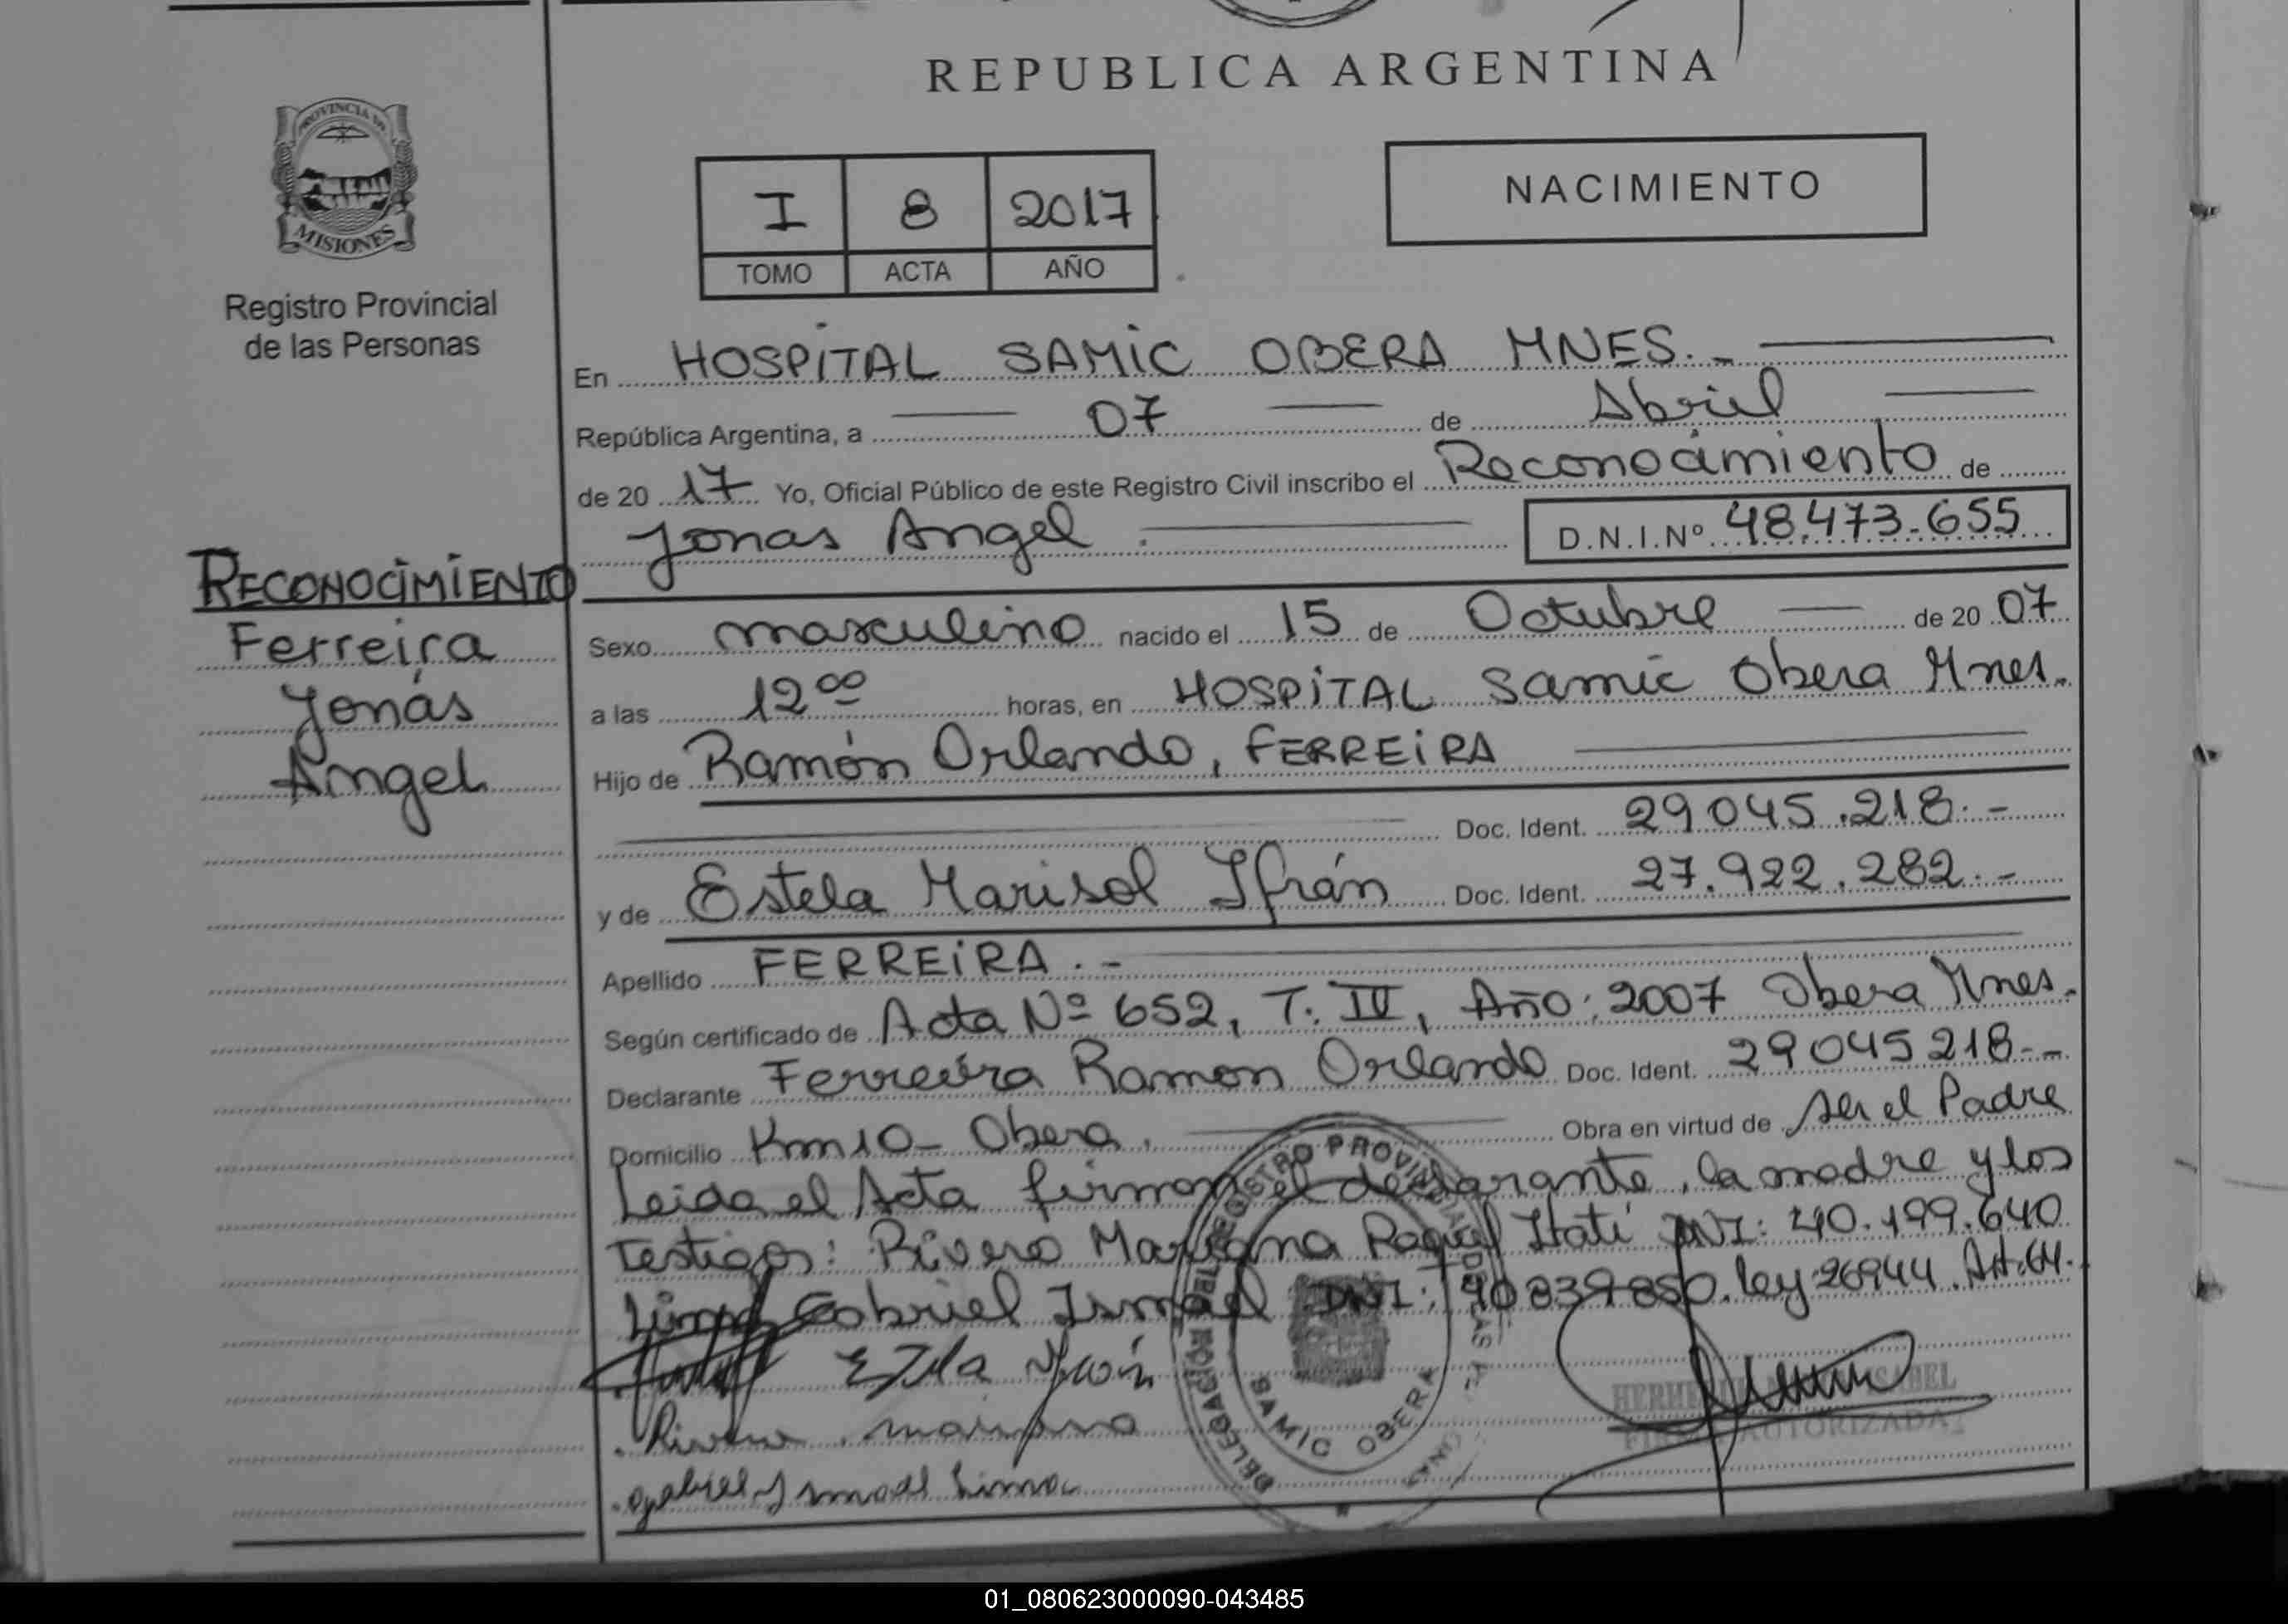 REPUBLICA ARGENTINA
PROVINCIA DE
MISIONES
Registro Provincial
de las Personas
I 8 2017
TOMO ACTA AÑO
NACIMIENTO
En HOSPITAL SAMIC OBERA MNES.-
República Argentina, a 07 de Abril
de 20 17 Yo, Oficial Público de este Registro Civil inscribo el Reconocimiento de
Jonas Angel. D.N.I.Nº 48.473.655
RECONOCIMIENTO
Ferreira
Jonás
Angel
Sexo masculino nacido el 15 de Octubre de 20 07
a las 12 00 horas, en HOSPITAL Samic Obera Mnes.
Hijo de Ramón Orlando, FERREIRA
Doc. Ident. 29045.218.-
y de Estela Marisol Ifrán Doc. Ident. 27.922.282.-
Apellido FERREIRA.-
Según certificado de Acta Nº 652, T. IV, Año: 2007 Obera Mnes.
Declarante Ferreira Ramon Orlando Doc. Ident. 29045218.-
Domicilio Km10- Obera. Obra en virtud de ser el Padre
Leida el Acta firman el declarante, la madre y los
testigos: Rivero Mariana Raquel Itatí DNI: 40.199.640
Gabriel Ismael DNI: 40839850. ley 26944. Art. 64.
Rivero mariana
gabriel Ismael Lima
REGISTRO PROVINCIAL DE LAS
DELEGACION
SAMIC OBERA
AUTORIZADA
01_080623000090-043485